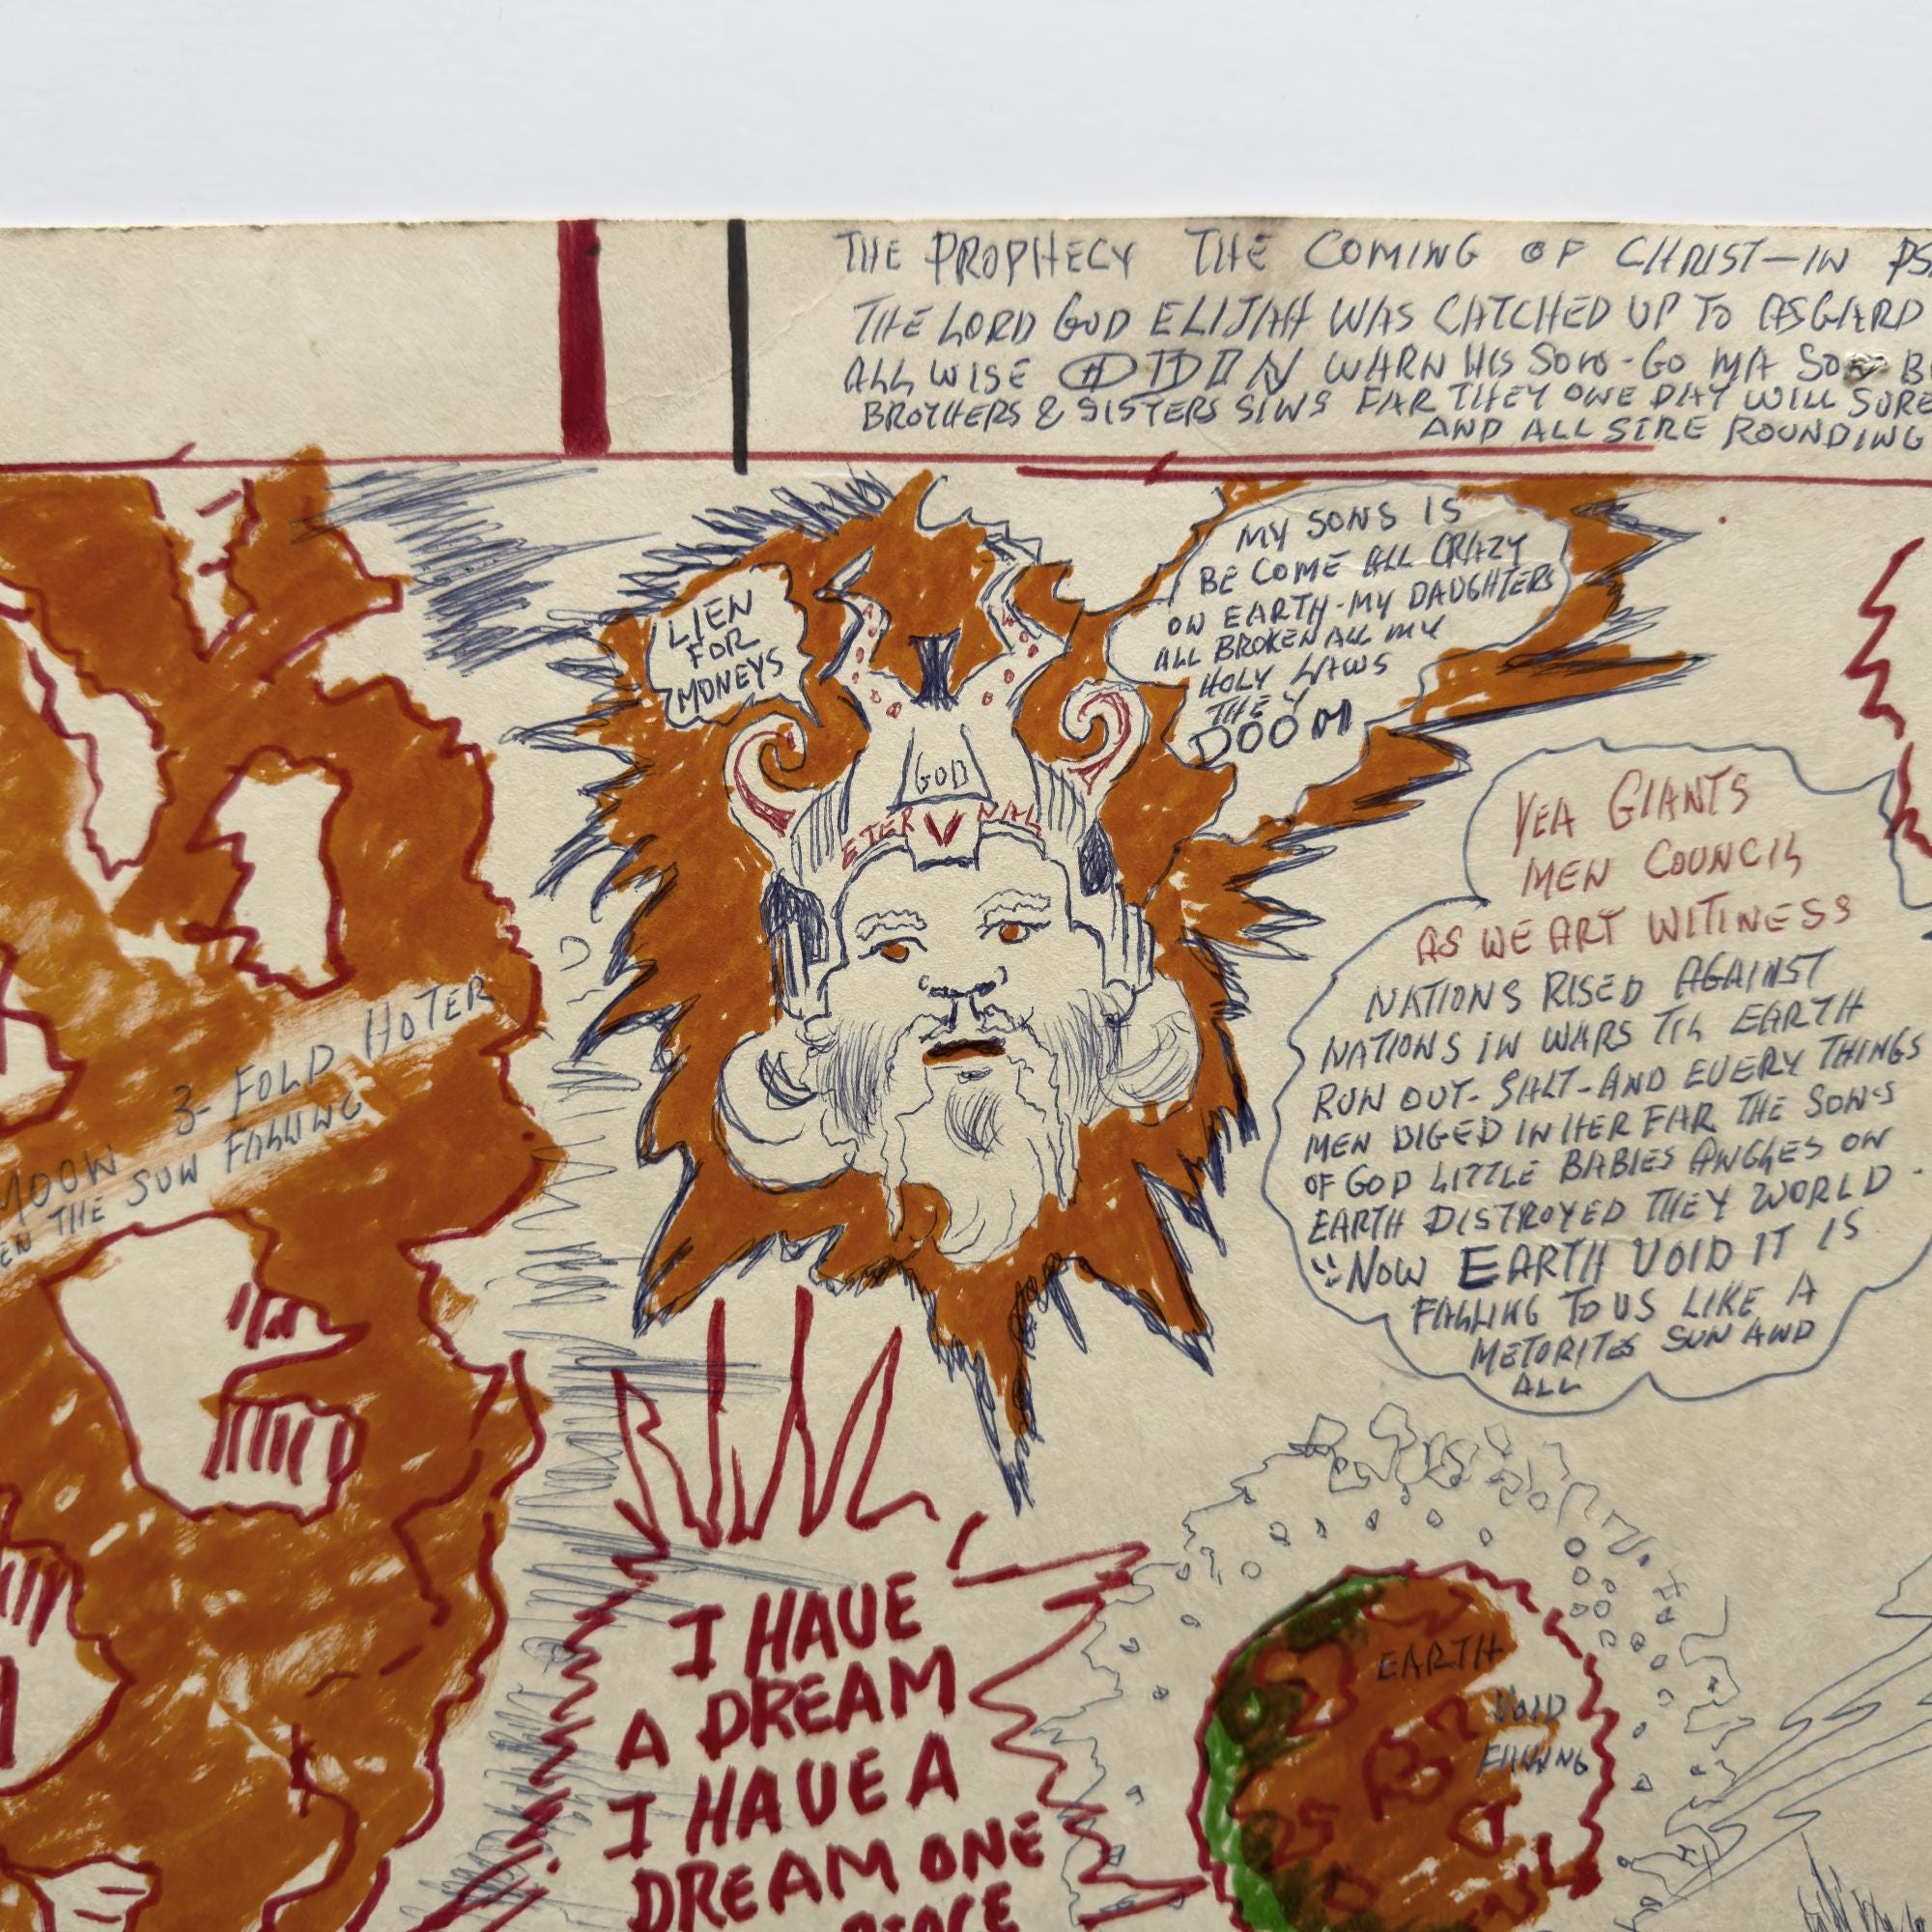 THE PROPHECY THE COMING OF CHRIST—IN PS
THE LORD GOD ELIJAH WAS CATCHED UP TO ASGARD
ALL WISE ODIIN WARN HIS SONS - GO MA SON B
BROTHERS & SISTERS SINS FAR THEY ONE DAY WILL SURE
AND ALL SIRE ROUNDING
LIEN
FOR
MONEYS
MY SONS IS
BE COME ALL CRAZY
ON EARTH - MY DAUGHTERS
ALL BROKEN ALL MY
HOLY LAWS
THEY
DOOM
GOD
ETER NAL
YEA GIANTS
MEN COUNCIL
AS WE ART WITINESS
NATIONS RISED AGAINST
NATIONS IN WARS TIL EARTH
RUN OUT - SALT - AND EVERY THINGS
MEN DIGED IN HER FAR THE SONS
OF GOD LITTLE BABIES ANGLES ON
EARTH DISTROYED THEY WORLD -
NOW EARTH VOID IT IS
FALLING TO US LIKE A
METORITES SUN AND
ALL
3 - FOLD HOTER
MOON
EN THE SUN FALLING
I HAVE
A DREAM
I HAVE A
DREAM ONE
PEACE
EARTH
VOID
FALLING